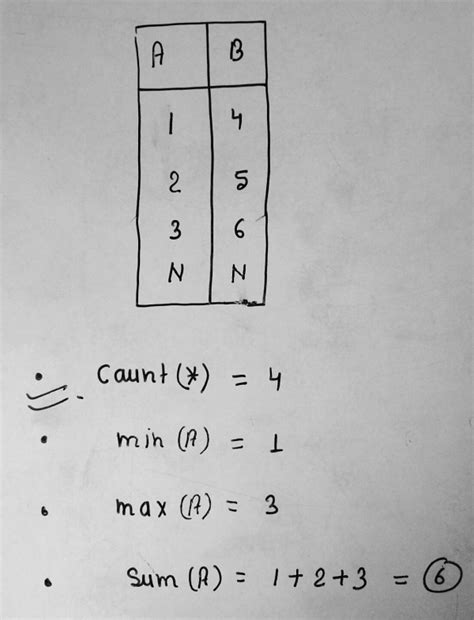 A B
1 4
2 5
3 6
N N
Caunt (*) = 4
min (A) = 1
max (A) = 3
Sum (A) = 1 + 2 + 3 = 6